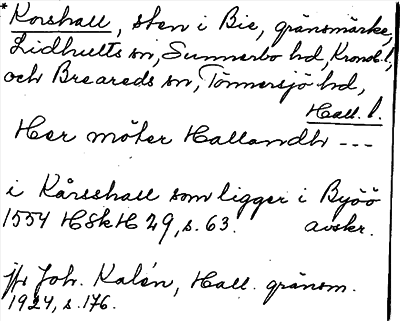 * Korshall, sten i Bie, gränsmärke,
Lidhults sn, Sunnerbo hd, Kronob. l,
och Breareds sn, Tönnersjö hd,
Hall. l.
Her möter Hallandh ---
i Kårsshall som ligger i Byöö
1554 HSkH 29, s. 63. avskr.
jfr Joh. Kalén, Hall. gränsm.
1924, s. 176.